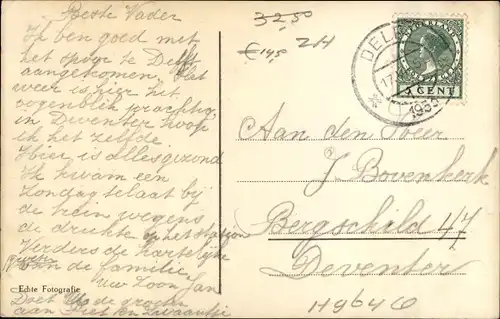 Beste Vader
Ik ben goed met
het spoor te Delft
aangekomen, Het
weer is hier het
oogenblik prachtig,
in Deventer hoop
ik het zelfde
Hier is alles gezond
Ik kwam een
Zondag te laat bij
de trein wegens
de drukte op het station
Verders de hartelijke
groeten
van de familie
uw Zoon Jan
Doet U de groeten
aan Piet en Zwaantje
Echte Fotografie
32,50
€ 14,5
2H
DEL
17
1935
NEDERLAND
5 CENT
Aan den Heer
J. Bovenkerk
Bergschild 47
Deventer
H9646